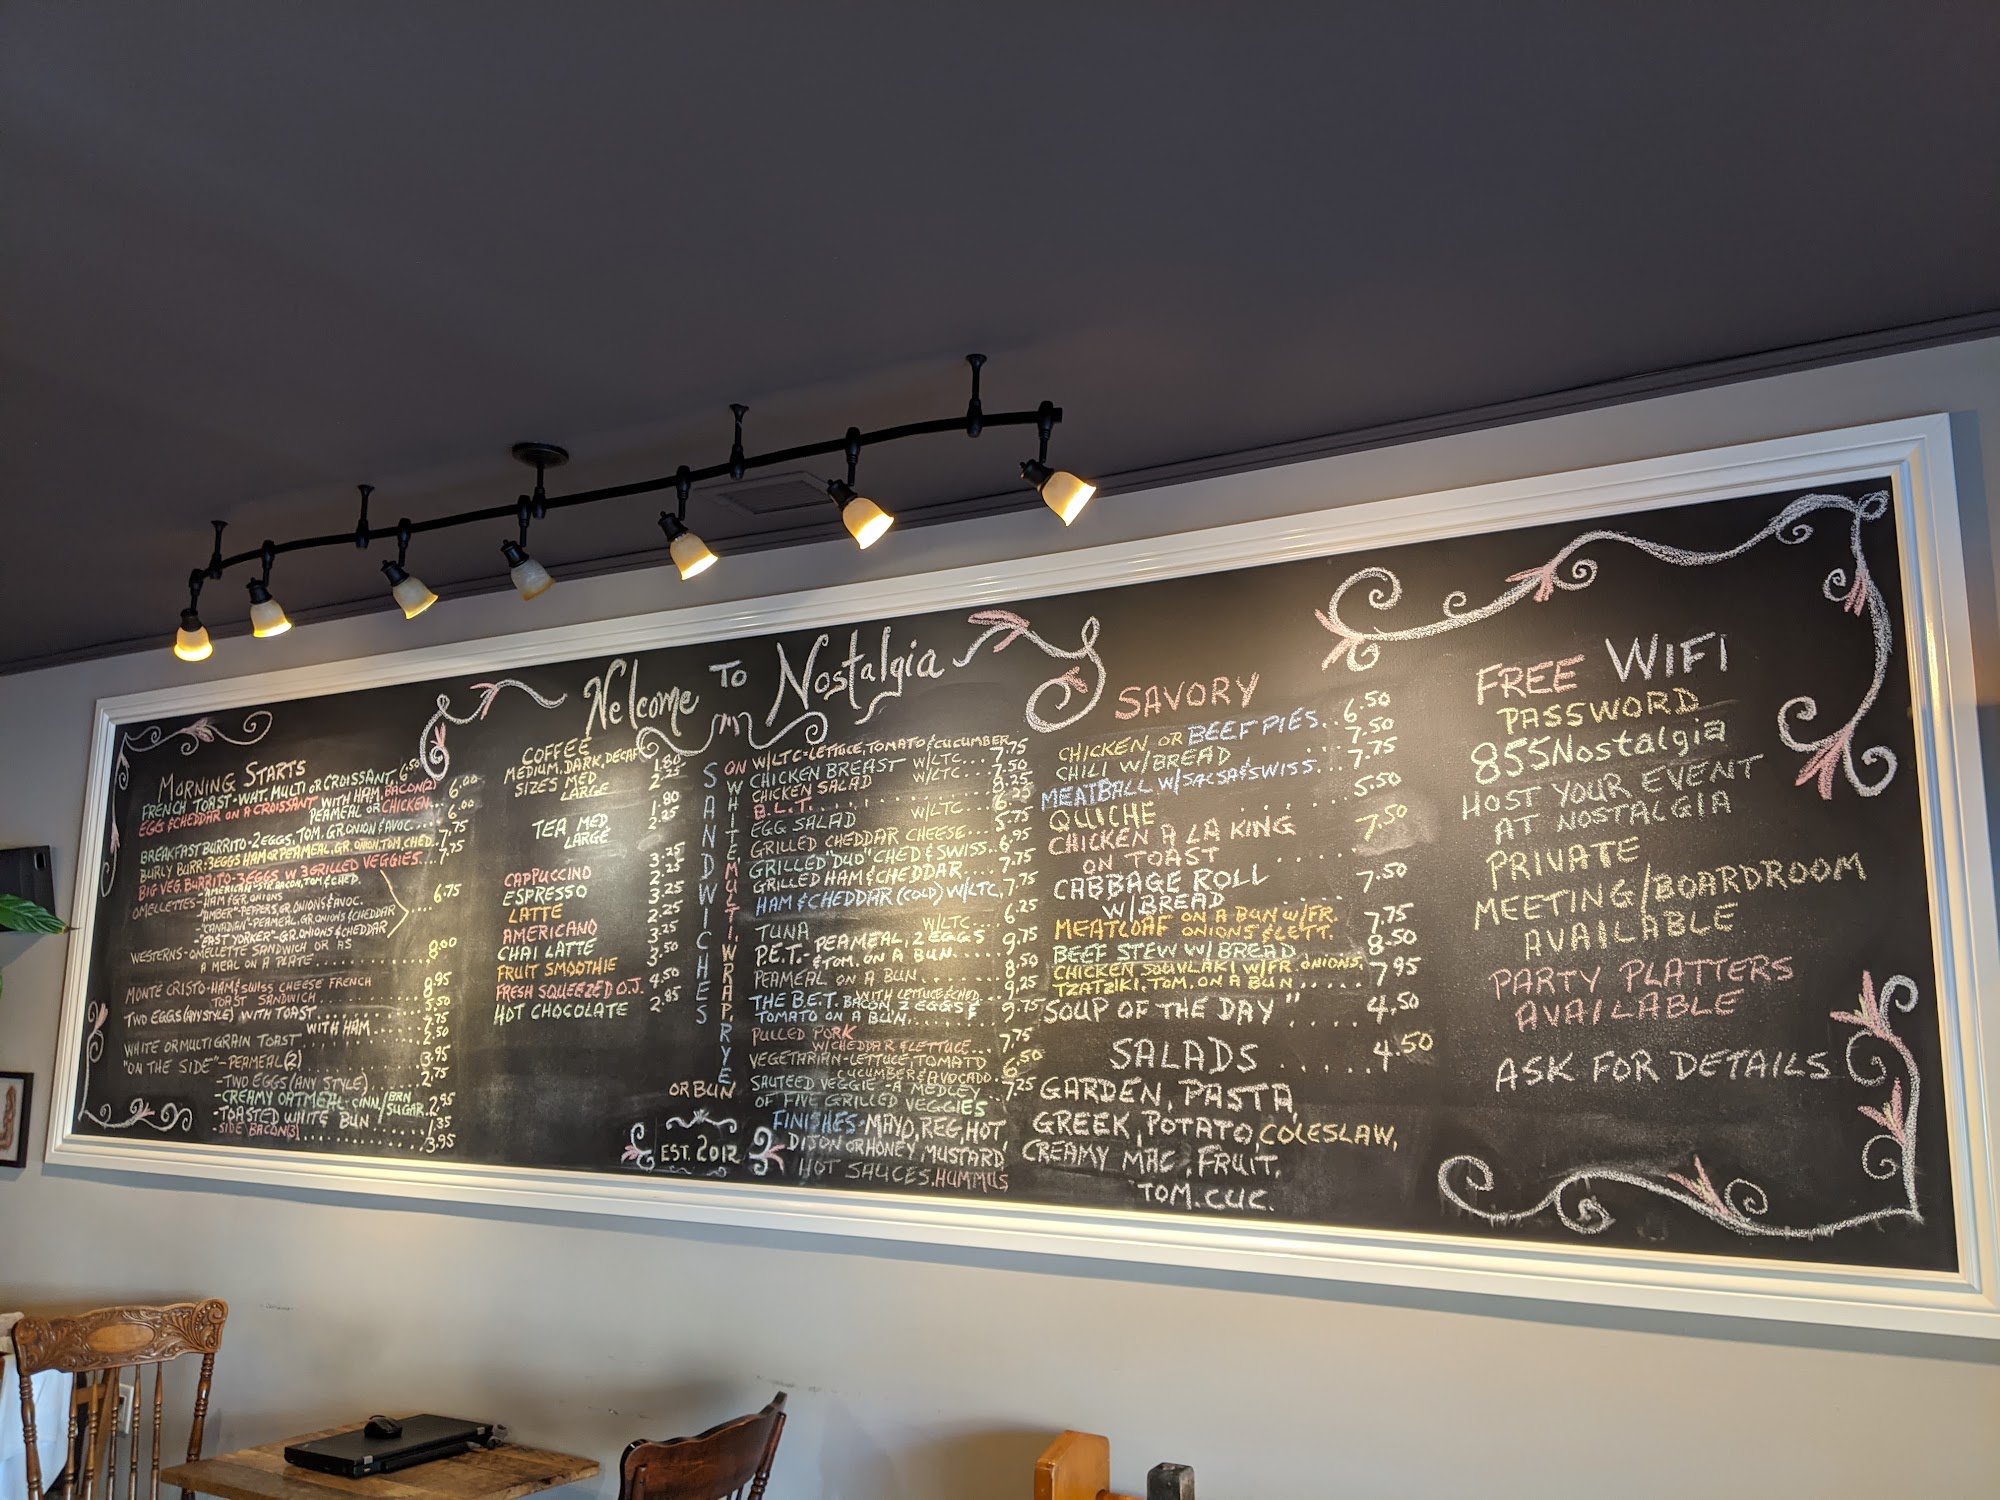 Welcome TO Nostalgia
MORNING STARTS
FRENCH TOAST-WHT. MULTI OR CROISSANT. 6.50
EGG & CHEDDAR ON A CROISSANT WITH HAM, BACON(2) 6.00
PEAMEAL OR CHICKEN...
BREAKFAST BURRITO-2 EGGS, TOM. GR. ONION & AVOC.... 6.00
BURLY BURR: 3 EGGS HAM OR PEAMEAL, GR. ONION, TOM, CHED. 7.75
BIG VEG. BURRITO-3 EGGS W 3 GRILLED VEGGIES... 7.75
OMELLETTES-AMERICAN-STR. BACON, TOM & CHED.
-HAM & GR. ONIONS
-"AMBER"-PEPERS, GR. ONIONS & AVOC. ....6.75
-"CANADIAN"-PEAMEAL, GR. ONIONS & CHEDDAR
-"EAST YORKER"-GR. ONIONS & CHEDDAR
WESTERNS-OMELLETTE SANDWICH OR AS
A MEAL ON A PLATE........ 8.00
MONTÉ CRISTO-HAM & SWISS CHEESE FRENCH
TOAST SANDWICH........ 8.95
TWO EGGS (ANY STYLE) WITH TOAST.... 5.50
WITH HAM.... 7.75
WHITE OR MULTI GRAIN TOAST........ 2.50
"ON THE SIDE"-PEAMEAL (2) 3.95
-TWO EGGS (ANY STYLE)..... 2.75
-CREAMY OATMEAL-CINN./BRN SUGAR. 2.95
-TOASTED WHITE BUN 1.35
-SIDE BACON(3)........... 3.95
COFFEE
MEDIUM, DARK, DECAF
SIZES MED 1.80
LARGE 2.25
TEA MED 1.80
LARGE 2.25
CAPPUCCINO 3.25
ESPRESSO 2.25
LATTE 3.25
AMERICANO 2.25
CHAI LATTE 3.25
FRUIT SMOOTHIE 3.50
FRESH SQUEEZED O.J. 4.50
HOT CHOCOLATE 2.85
SANDWICHES
ON WHITE, MULTI, WRAP, RYE
OR BUN
EST. 2012
W/LTC=LETTUCE, TOMATO & CUCUMBER
CHICKEN BREAST W/LTC... 7.75
CHICKEN SALAD W/LTC... 7.50
B.L.T............. 6.25
EGG SALAD W/LTC... 6.25
GRILLED CHEDDAR CHEESE... 5.75
GRILLED "DUO" CHED & SWISS.. 6.95
GRILLED HAM & CHEDDAR. 7.75
HAM & CHEDDAR (COLD) W/LTC, 7.75
TUNA W/LTC... 6.25
P.E.T.-PEAMEAL, 2 EGGS
& TOM. ON A BUN. 9.75
PEAMEAL ON A BUN... 8.50
WITH LETTUCE & CHED
THE B.E.T. BACON, 2 EGGS & 9.25
TOMATO ON A BUN...... 9.75
PULLED PORK
W/CHEDDAR & LETTUCE... 7.75
VEGETARIAN-LETTUCE, TOMATO
CUCUMBER & AVOCADO. 6.50
SAUTEED VEGGIE-A MEDLEY
OF FIVE GRILLED VEGGIES 7.25
FINISHES-MAYO, REG, HOT,
DIJON OR HONEY, MUSTARD
HOT SAUCES, HUMMUS
SAVORY
CHICKEN OR BEEF PIES... 6.50
CHILI W/BREAD .... 7.50
MEATBALL W/SALSA & SWISS.... 7.75
QUICHE ........ 5.50
CHICKEN A LA KING
ON TOAST ...... 7.50
CABBAGE ROLL
W/BREAD....... 7.50
MEATLOAF ON A BUN W/FR.
ONIONS & LETT. 7.75
BEEF STEW W/BREAD 8.50
CHICKEN SOUVLAKI W/FR. ONIONS,
TZATZIKI, TOM. ON A BUN..... 7.95
SOUP OF THE DAY" ..... 4.50
SALADS ..... 4.50
GARDEN, PASTA,
GREEK, POTATO, COLESLAW,
CREAMY MAC, FRUIT,
TOM. CUC.
FREE WIFI
PASSWORD
855Nostalgia
HOST YOUR EVENT
AT NOSTALGIA
PRIVATE
MEETING/BOARDROOM
AVAILABLE
PARTY PLATTERS
AVAILABLE
ASK FOR DETAILS